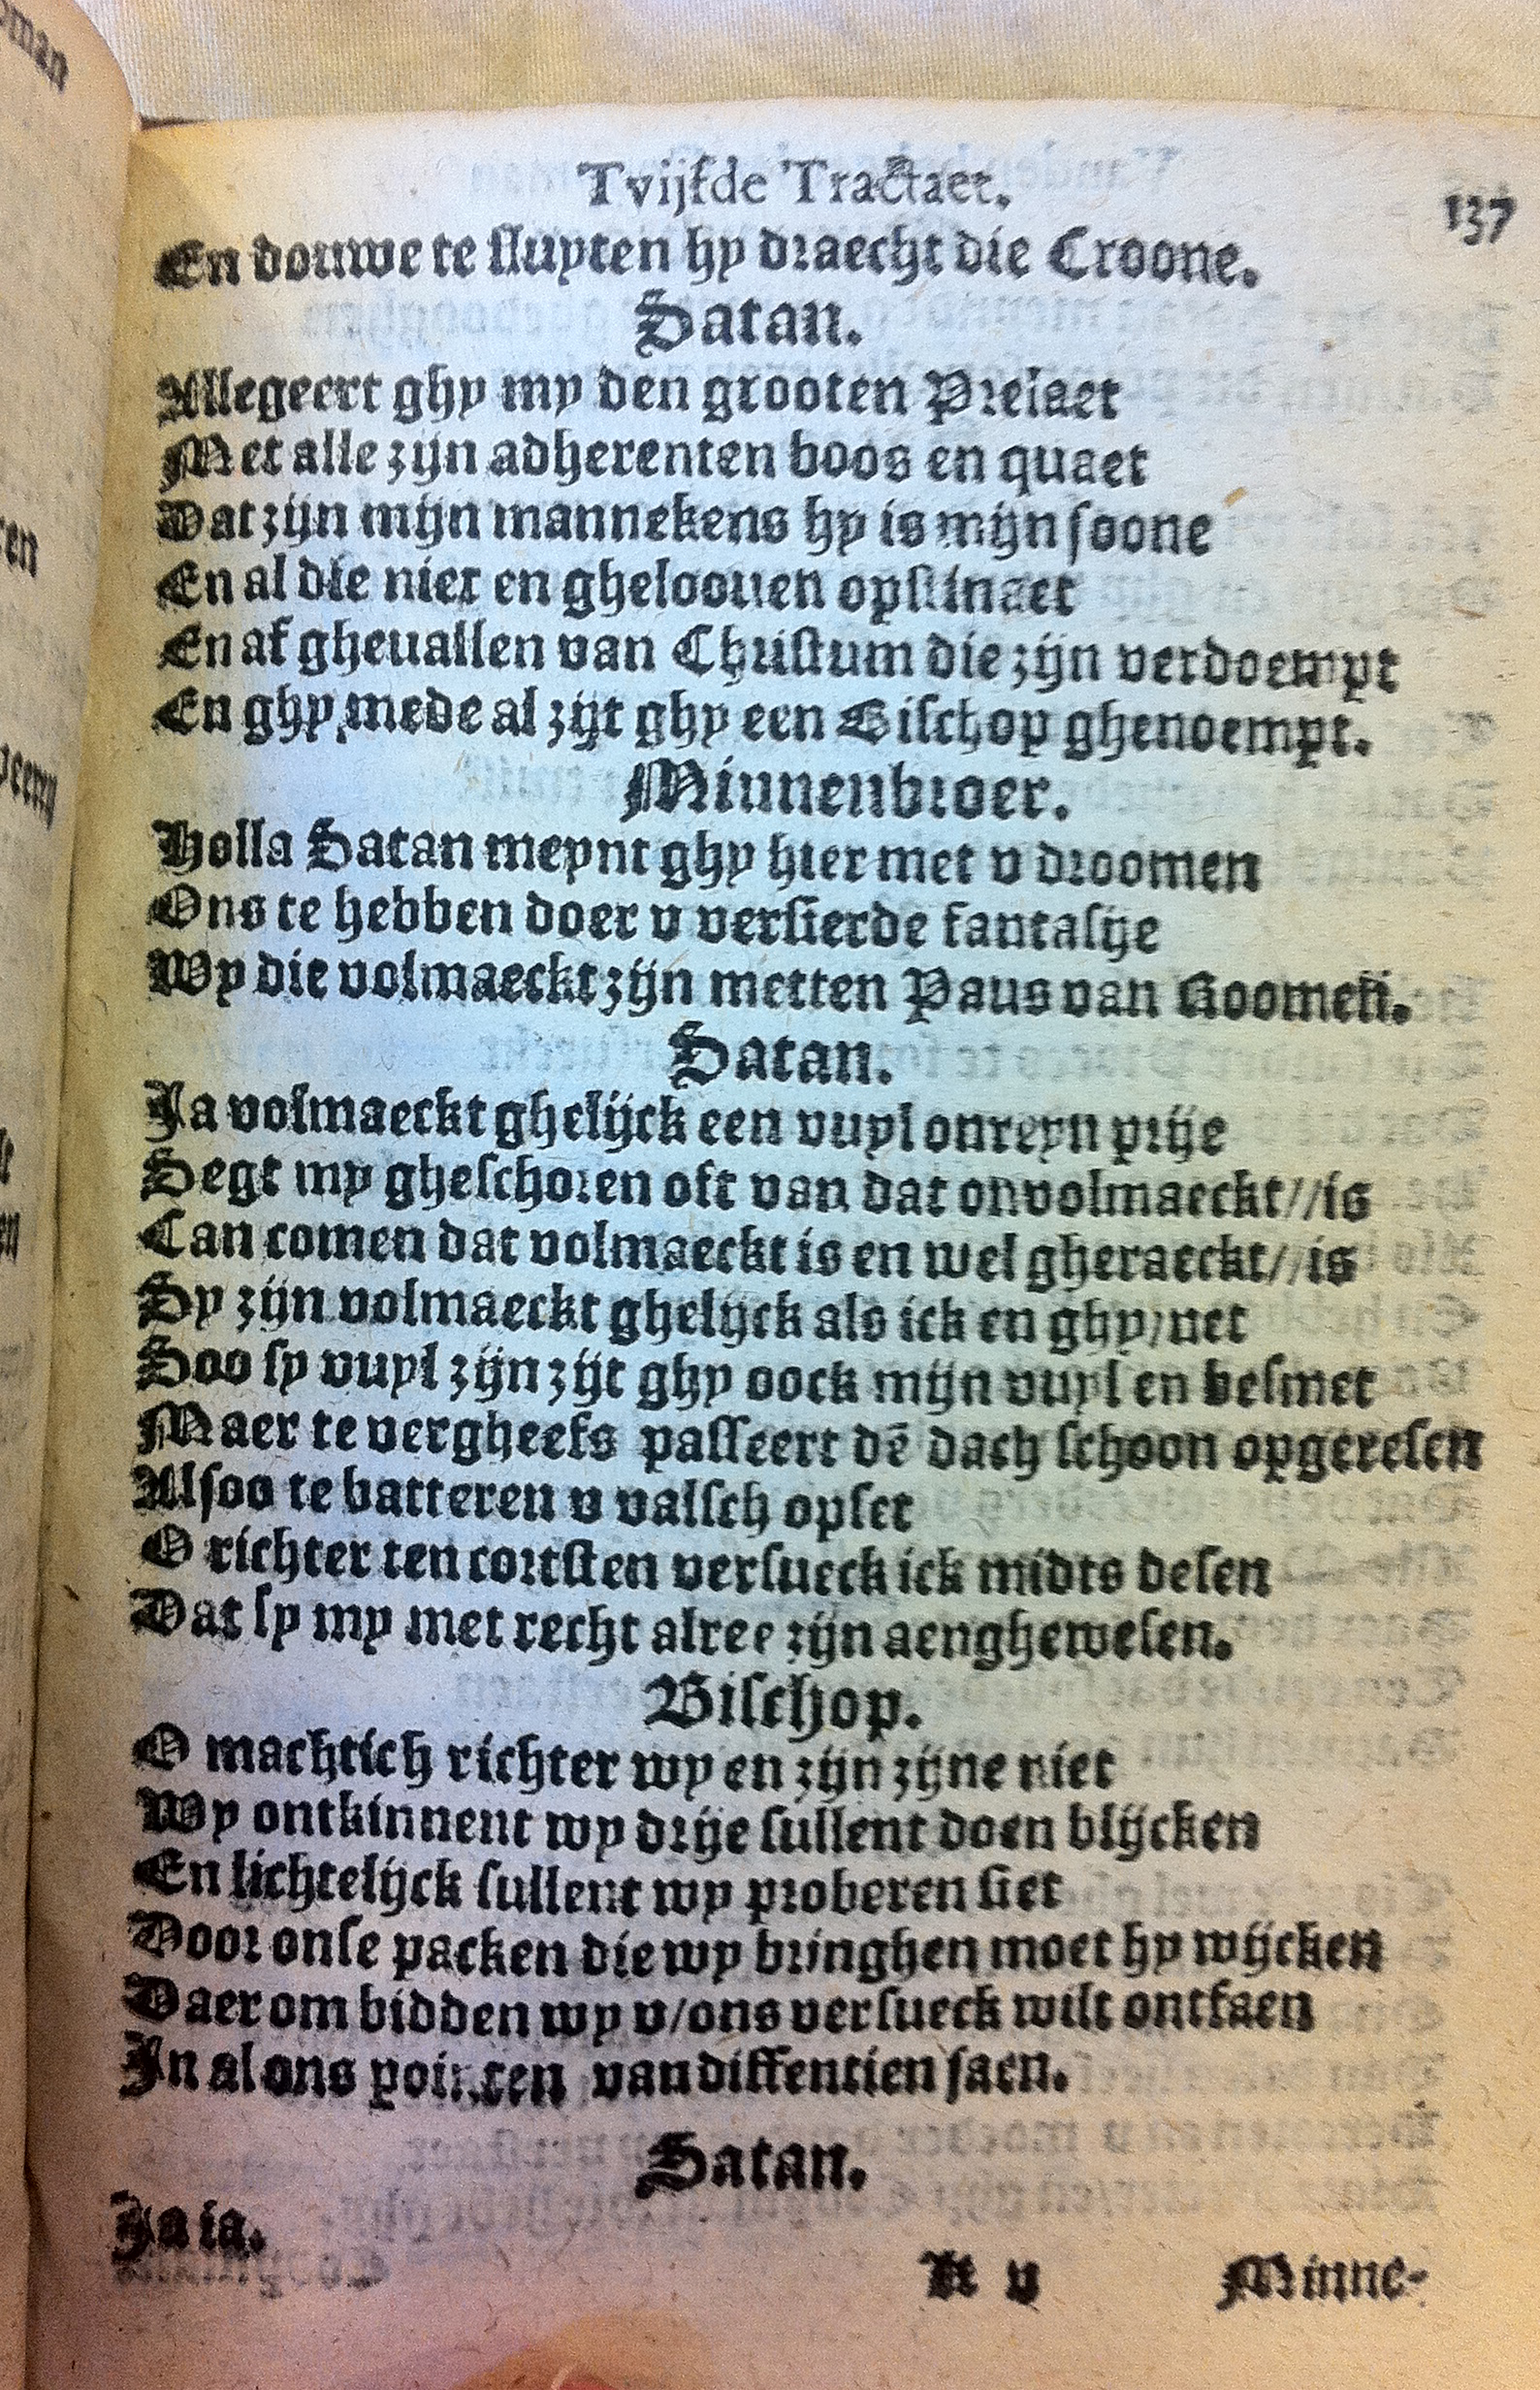 Tvijfde Tractaet.
137
En douwe te sluyten hy draecht die Croone.
Satan.
Allegeert ghy my den grooten Prelaet
Met alle zijn adherenten boos en quaet
Dat zijn mijn mannekens hy is mijn soone
En al die niet en gheloouen opstinaet
En af gheuallen van Christum die zijn verdoempt
En ghy mede al zijt ghy een Bisschop ghenoempt.
Minnenbroer.
Holla Satan meynt ghy hier met v droomen
Ons te hebben doer v versierde fantasije
Wy die volmaeckt zijn metten Paus van Roomen.
Satan.
Ja volmaeckt ghelijck een vuyl onreyn prije
Segt my gheschoren oft van dat onvolmaeckt//is
Can comen dat volmaeckt is en wel gheraeckt//is
Sy zijn volmaeckt ghelijck als ick en ghy/net
Soo sy vuyl zijn zijt ghy oock mijn vuyl en besmet
Maer te vergheefs passeert dē dach schoon opgeresen
Alsoo te batteren v valsch opset
O richter ten cortsten versueck ick midts desen
Dat sy my met recht alree zijn aenghewesen.
Bisschop.
O machtich richter wy en zijn zijne niet
Wy ontkinnent wy drije sullent doen blijcken
En lichtelijck sullent wy proberen siet
Door onse packen die wy bringhen moet hy wijcken
Daer om bidden wy v/ons versueck wilt ontfaen
In al ons pointen van diffentien saen.
Satan.
Ja ia.
R v
Minne-